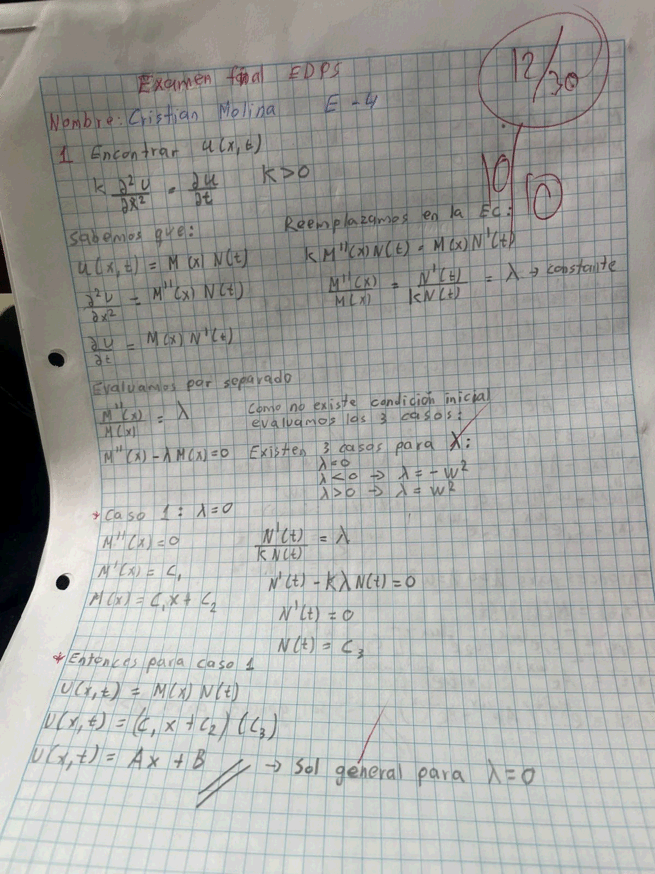 12/30
Examen final EDPS
Nombre: Cristian Molina E-4
1 Encontrar u(x,t)
k ∂²U/∂x² = ∂U/∂t K>0
10/10
Sabemos que:
u(x,t) = M(x) N(t)
∂²U/∂x² = M''(x) N(t)
∂U/∂t = M(x) N'(t)
Reemplazamos en la Ec:
k M''(x) N(t) = M(x) N'(t)
M''(x)/M(x) = N'(t)/kN(t) = λ → constante
Evaluamos por separado
M''(x)/M(x) = λ
M''(x) - λ M(x) = 0
Como no existe condición inicial
evaluamos los 3 casos:
Existen 3 casos para λ:
λ=0
λ<0 → λ = -w²
λ>0 → λ = w²
* Caso 1: λ=0
M''(x) = 0
M'(x) = C₁
M(x) = C₁x + C₂
N'(t)/kN(t) = λ
N'(t) - kλN(t) = 0
N'(t) = 0
N(t) = C₃
* Entonces para caso 1
U(x,t) = M(x) N(t)
U(x,t) = (C₁x + C₂)(C₃)
U(x,t) = Ax + B // → Sol general para λ=0